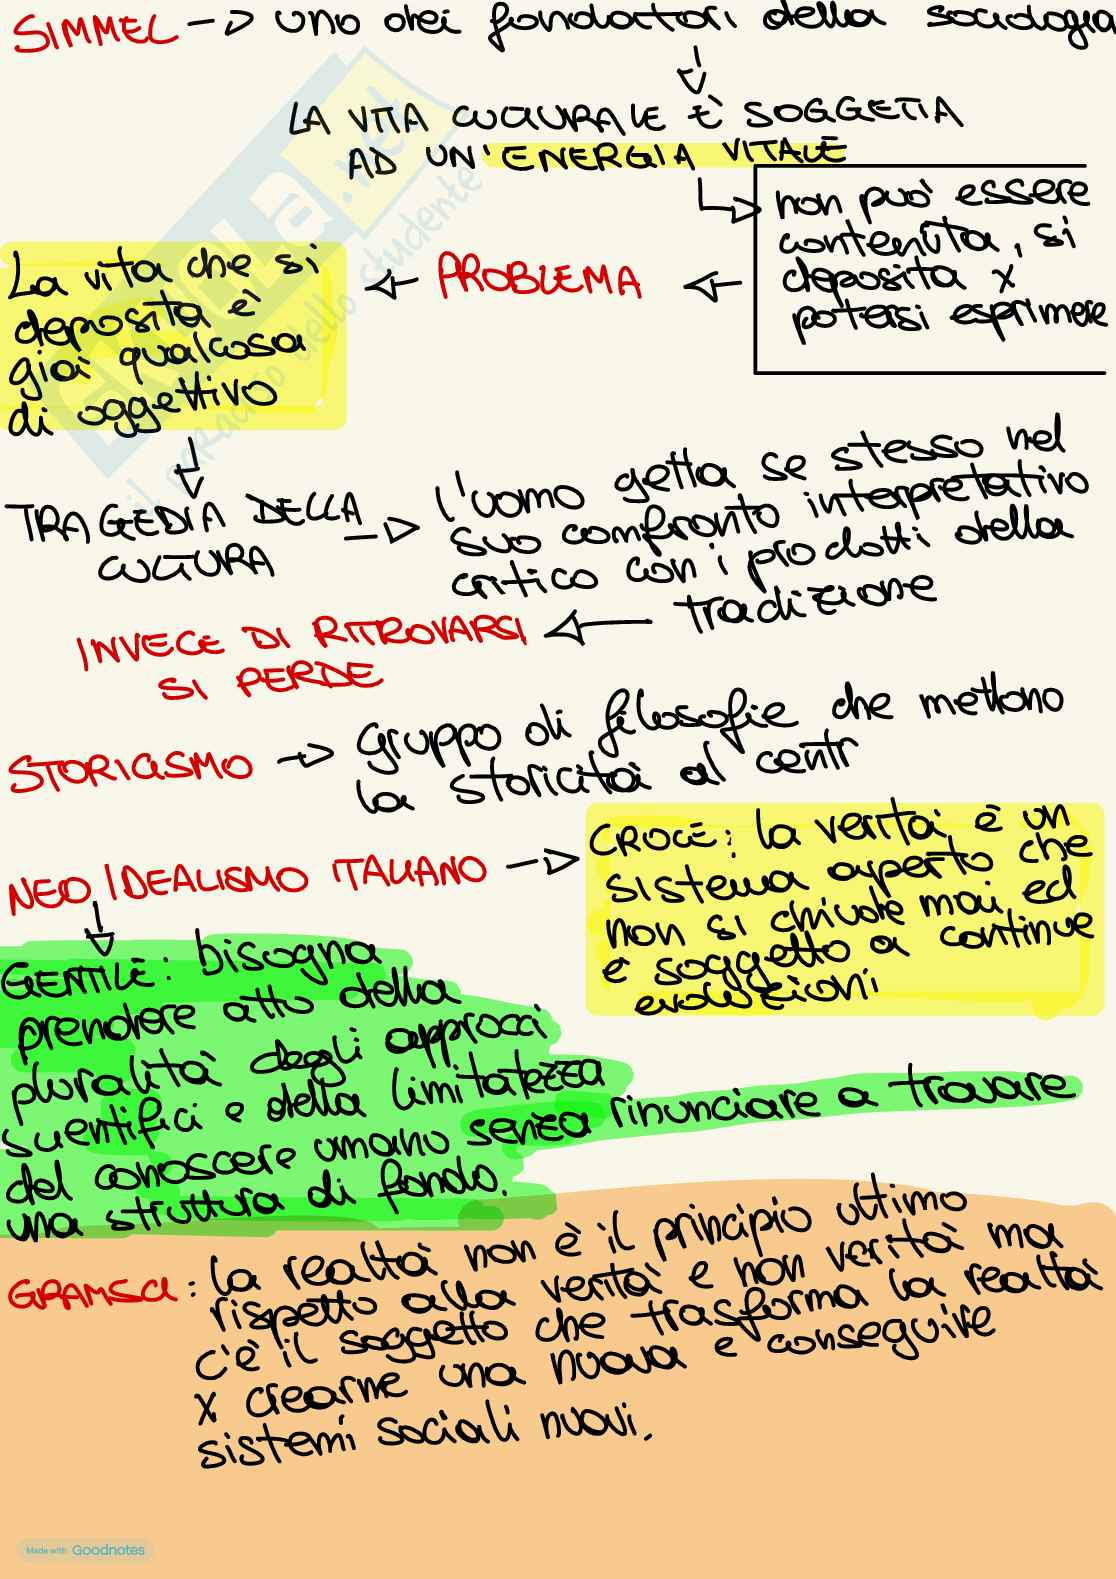 SIMMEL -> uno dei fondattori della sociologia
LA VITA CULTURALE È SOGGETTA
AD UN'ENERGIA VITALE
non può essere
contenuta, si
deposita x
potersi esprimere
PROBLEMA
La vita che si
deposita è
già qualcosa
di oggettivo
TRAGEDIA DELLA
CULTURA
l'uomo getta se stesso nel
suo confronto interpretativo
critico con i prodotti della
tradizione
INVECE DI RITROVARSI
SI PERDE
STORICISMO -> gruppo di filosofie che mettono
la storicità al centr
NEO IDEALISMO ITALIANO
CROCE: la verità è un
sistema aperto che
non si chiude mai ed
è soggetto a continue
evoluzioni
GENTILE: bisogna
prendere atto della
pluralità degli approcci
scientifici e della limitatezza
del conoscere umano senza rinunciare a trovare
una struttura di fondo.
GRAMSCI: la realtà non è il principio ultimo
rispetto alla verità e non verità ma
c'è il soggetto che trasforma la realtà
x crearne una nuova e conseguire
sistemi sociali nuovi.
Made with Goodnotes